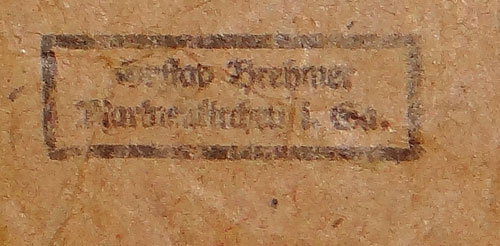 Gustav Brehmer
Markneukirchen i. Sa.